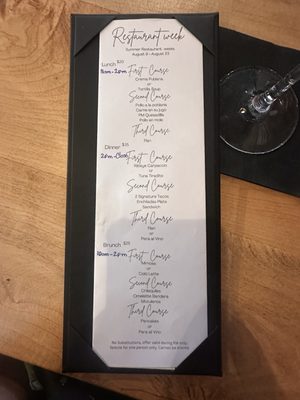 Restaurant week
Summer Restaurant weeks
August 9 - August 23
Lunch $20
11am - 2pm
First Course
Crema Poblana
or
Tortilla Soup
Second Course
Pollo a la poblana
Carne en su jugo
PM Quesadilla
Pollo en Mole
Third Course
Flan
Dinner $35
First Course
Vallaye Carpaccio
or
Tuna Tiradito
Second Course
2 Signature Tacos
Enchiladas Plate
Sandwich
Third Course
Flan
or
Pera al Vino
Brunch $25
10am - 2pm
First Course
Mimosa
or
Cafe Latte
Second Course
Chilaquiles
Omelette Bandera
Third Course
Pancakes
or
Pera al Vino
No Substitutions, offer valid during the
Special for one person only. Cannot be